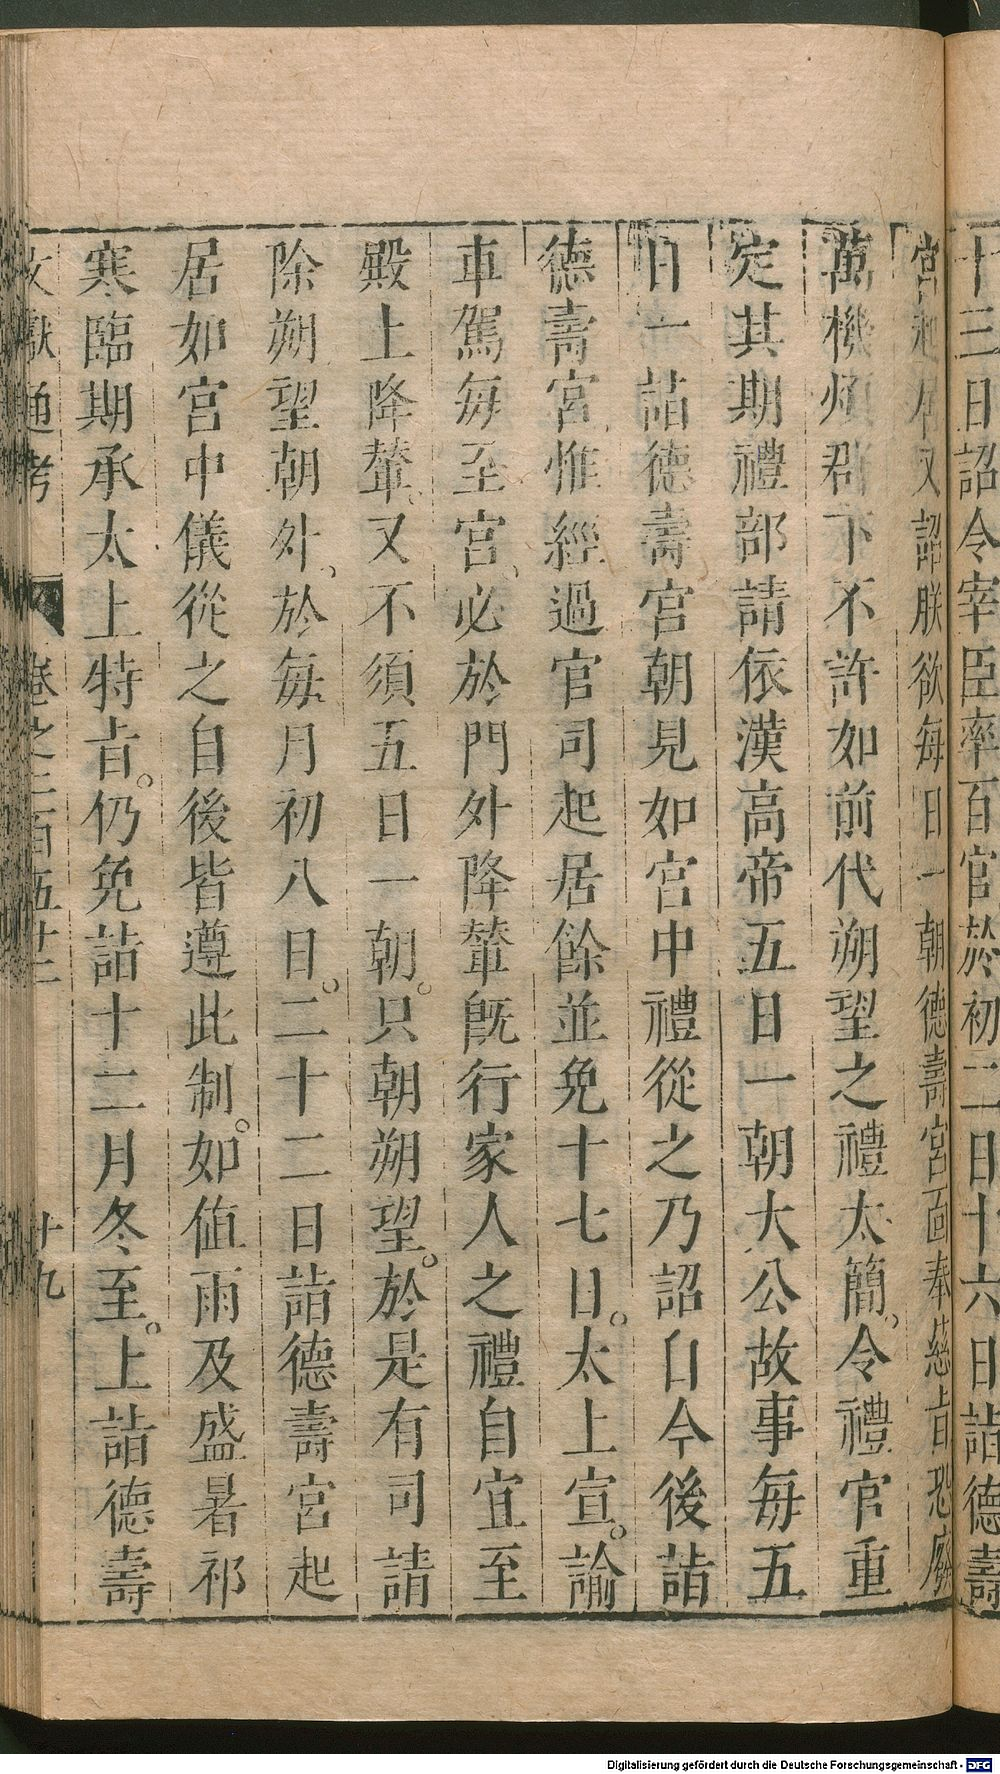 十三日詔令宰臣率百官於初二日十六日詣德壽
宮起居又詔朕欲每日一朝德壽宮面奉慈旨恐廢
萬機煩群下不許如前代朔望之禮太簡令禮官重
定其期禮部請依漢高帝五日一朝大公故事每五
日一詣德壽宮朝見如宮中禮從之乃詔自今後詣
德壽宮惟經過官司起居餘並免十七日。太上宣。諭
車駕每至宮必於門外降輦既行家人之禮自宜至
殿上降輦。又不須五日一朝。只朝朔望。於是有司請
除朔望朝外。於每月初八日。二十二日詣德壽宮起
居如宮中儀從之自後皆遵此制。如値雨及盛暑祁
寒臨期承太上特旨。仍免詣十二月冬至。上詣德壽
文獻通考 卷之二百五十二 十九
Digitalisierung gefördert durch die Deutsche Forschungsgemeinschaft - DFG